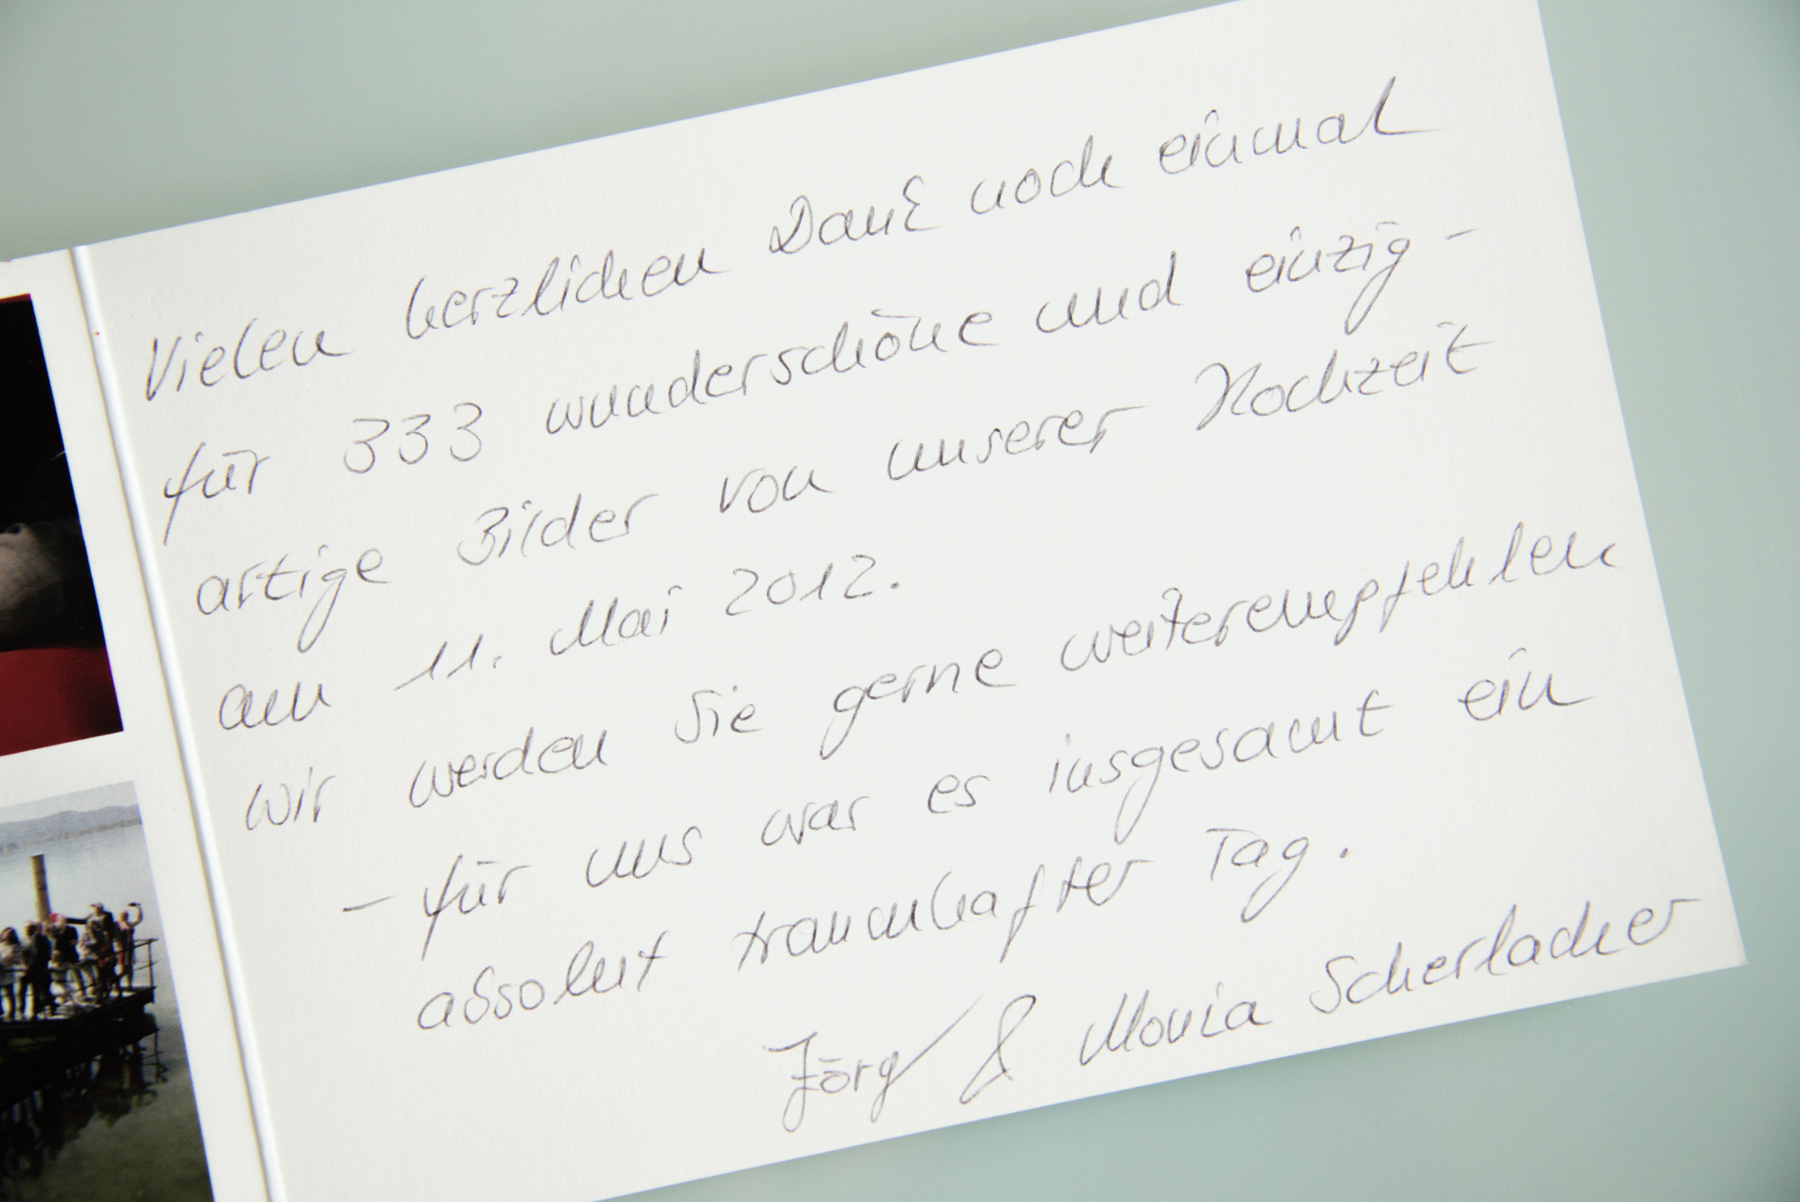 Vielen herzlichen Dank noch einmal
für 333 wunderschöne und einzig-
artige Bilder von unserer Hochzeit
am 11. Mai 2012.
Wir werden Sie gerne weiterempfehlen
- für uns war es insgesamt ein
absolut traumhafter Tag.
Jörg & Monia Scherlacher